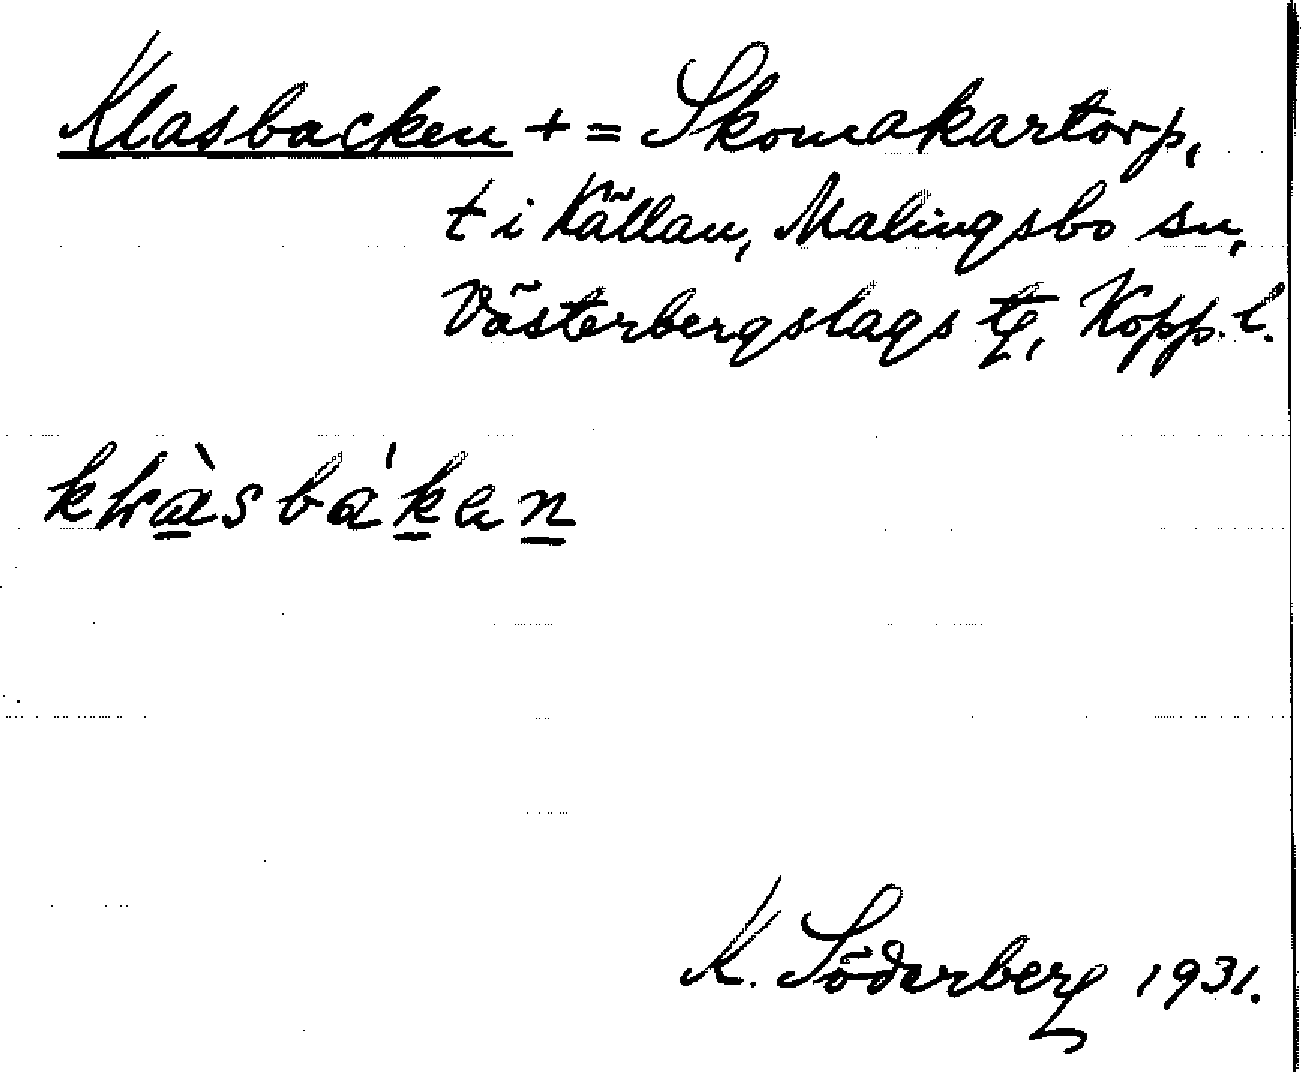 Klasbacken + = Skomakartorp,
t i Källan, Malingsbo sn,
Västerbergslags tg, Kopp. l.
K. Söderberg 1931.